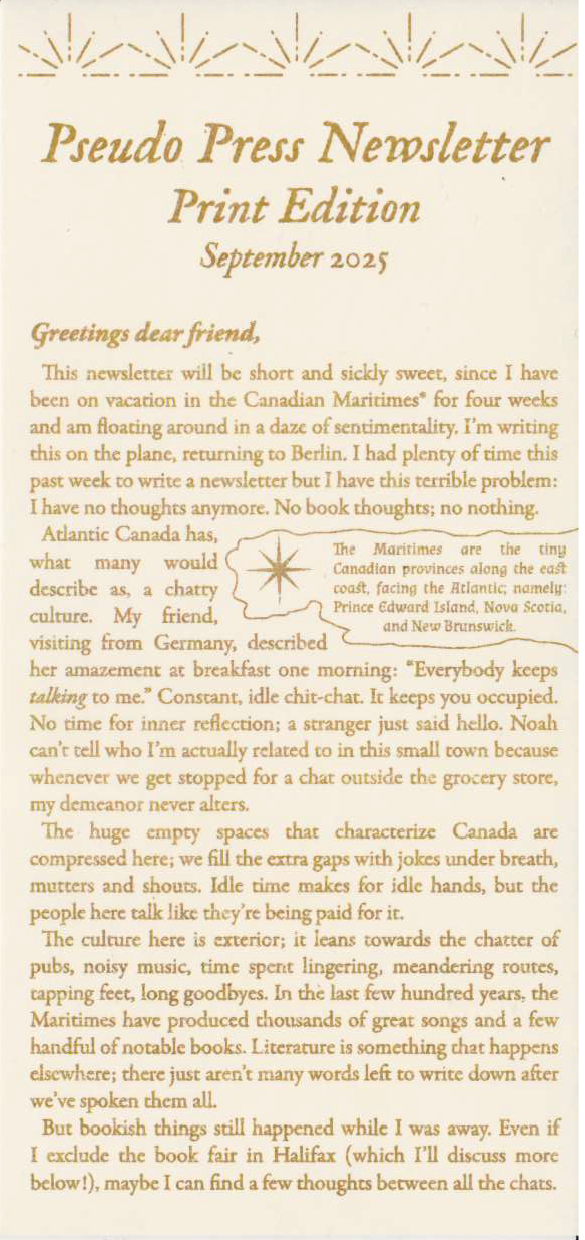 Pseudo Press Newsletter
Print Edition
September 2025
Greetings dear friend,
This newsletter will be short and sickly sweet, since I have
been on vacation in the Canadian Maritimes* for four weeks
and am floating around in a daze of sentimentality. I'm writing
this on the plane, returning to Berlin. I had plenty of time this
past week to write a newsletter but I have this terrible problem:
I have no thoughts anymore. No book thoughts; no nothing.
Atlantic Canada has,
what many would
describe as, a chatty
culture. My friend,
visiting from Germany, described
The Maritimes are the tiny
Canadian provinces along the east
coast, facing the Atlantic; namely:
Prince Edward Island, Nova Scotia,
and New Brunswick.
her amazement at breakfast one morning: "Everybody keeps
talking to me." Constant, idle chit-chat. It keeps you occupied.
No time for inner reflection; a stranger just said hello. Noah
can't tell who I'm actually related to in this small town because
whenever we get stopped for a chat outside the grocery store,
my demeanor never alters.
The huge empty spaces that characterize Canada are
compressed here; we fill the extra gaps with jokes under breath,
mutters and shouts. Idle time makes for idle hands, but the
people here talk like they're being paid for it.
The culture here is exterior; it leans towards the chatter of
pubs, noisy music, time spent lingering, meandering routes,
tapping feet, long goodbyes. In the last few hundred years, the
Maritimes have produced thousands of great songs and a few
handful of notable books. Literature is something that happens
elsewhere; there just aren't many words left to write down after
we've spoken them all.
But bookish things still happened while I was away. Even if
I exclude the book fair in Halifax (which I'll discuss more
below!), maybe I can find a few thoughts between all the chats.